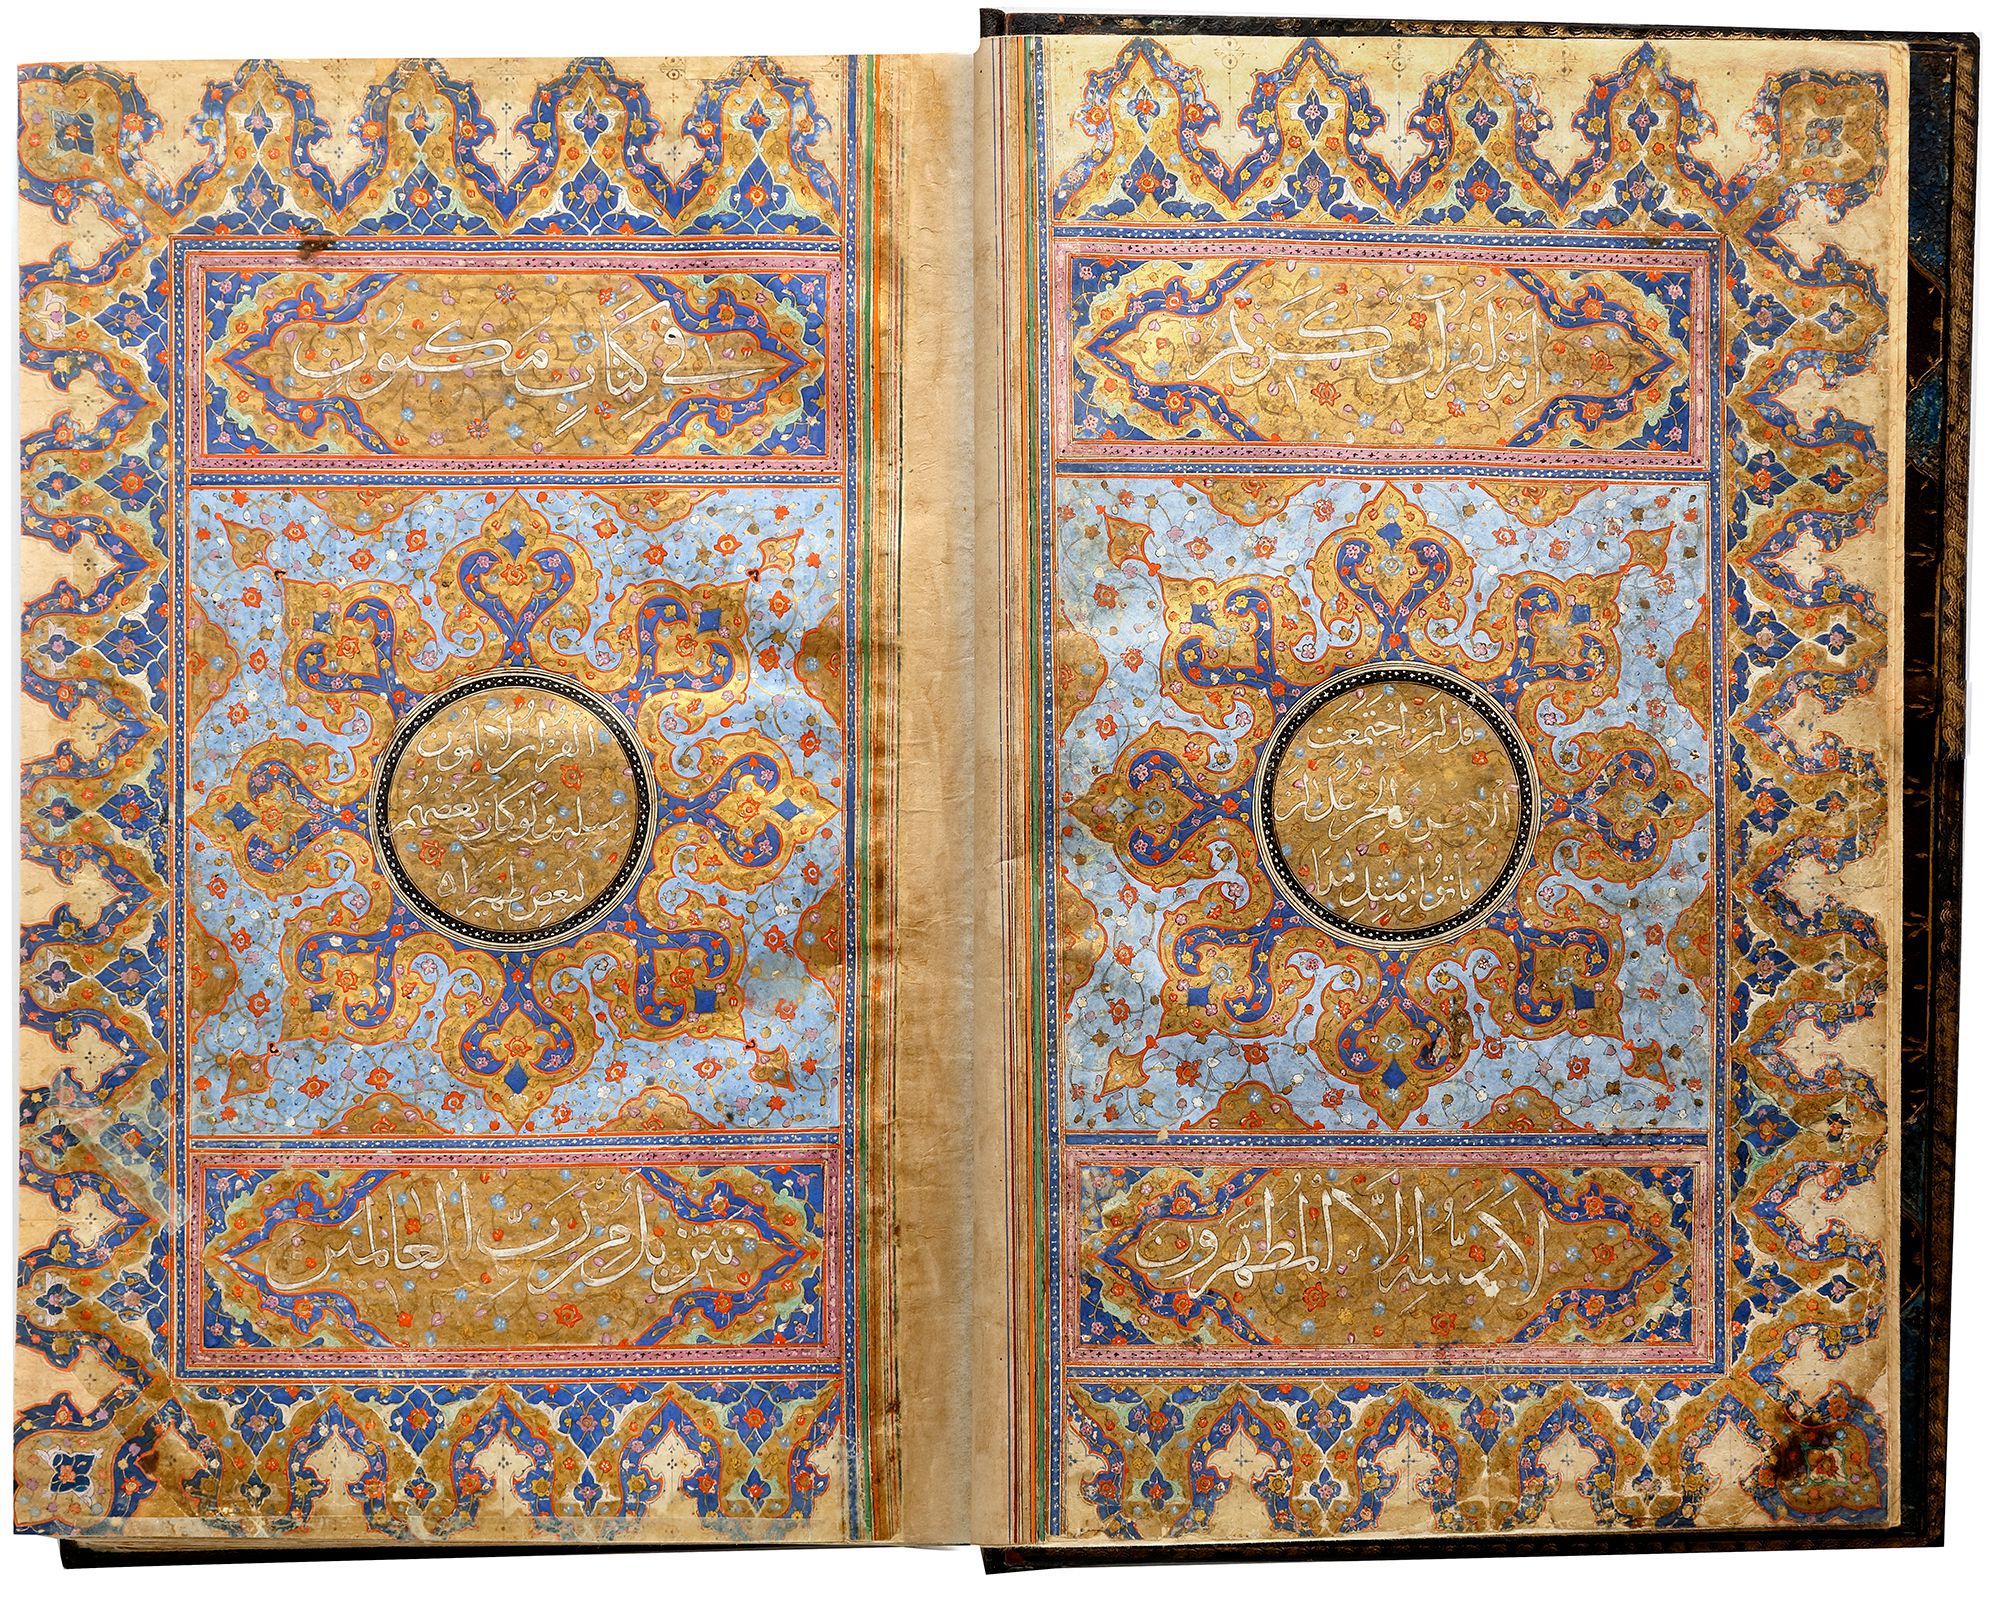 إنه لقرآن كريم
قل لئن اجتمعت
الإنس والجن على أن
يأتوا بمثل هذا
لا يمسه إلا المطهرون
في كتاب مكنون
القرآن لا يأتون
بمثله ولو كان بعضهم
لبعض ظهيرا
تنزيل من رب العالمين